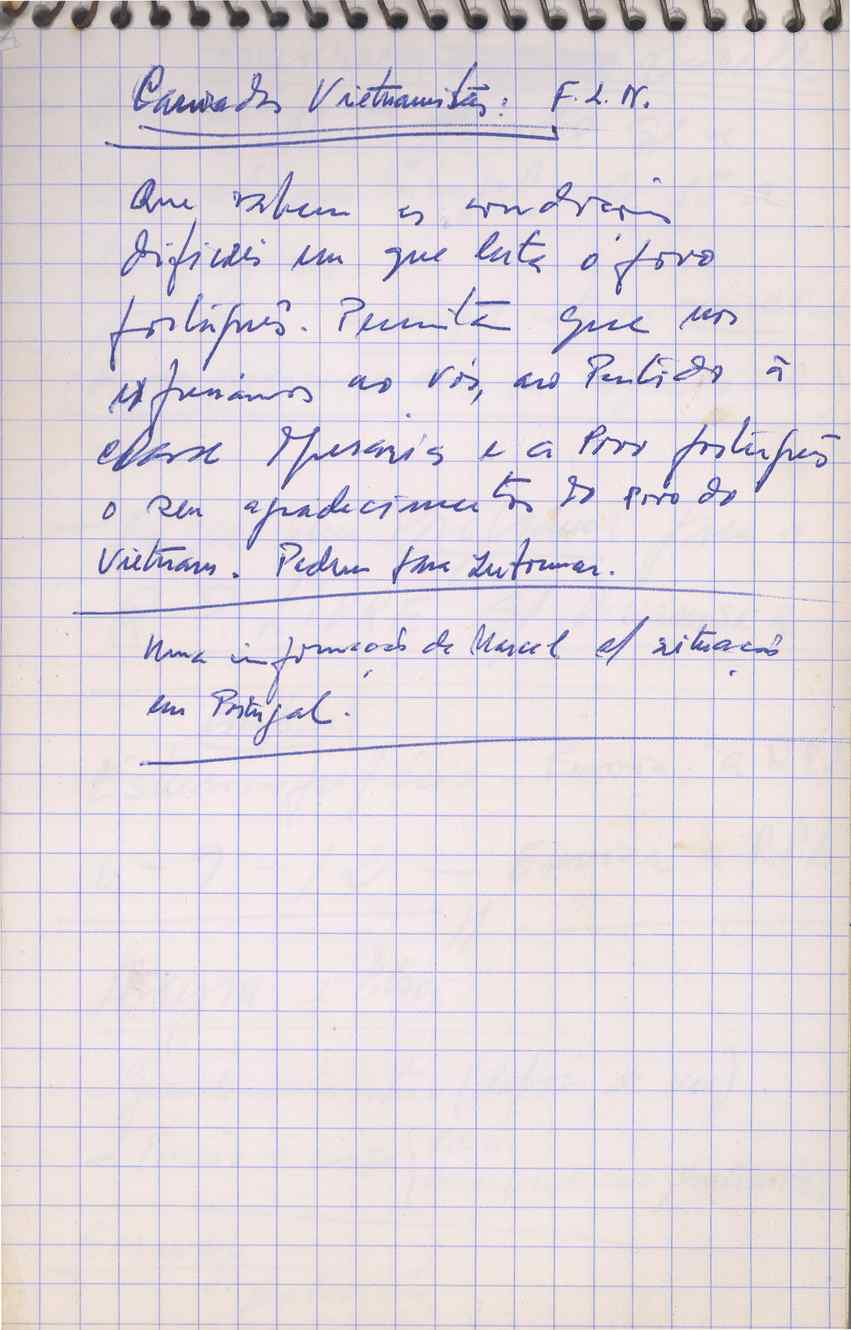 Camaradas Vietnamitas: F. L. N.
Que sabem as condições
dificeis em que luta o povo
português. Permitam que nos
expressamos ao vós, ao Partido à
classe Operaria e a Povo português
o seu agradecimentos do povo do
Vietnam. Pedem para Informar.
Uma informação de Marcel s/ situação
em Portugal.